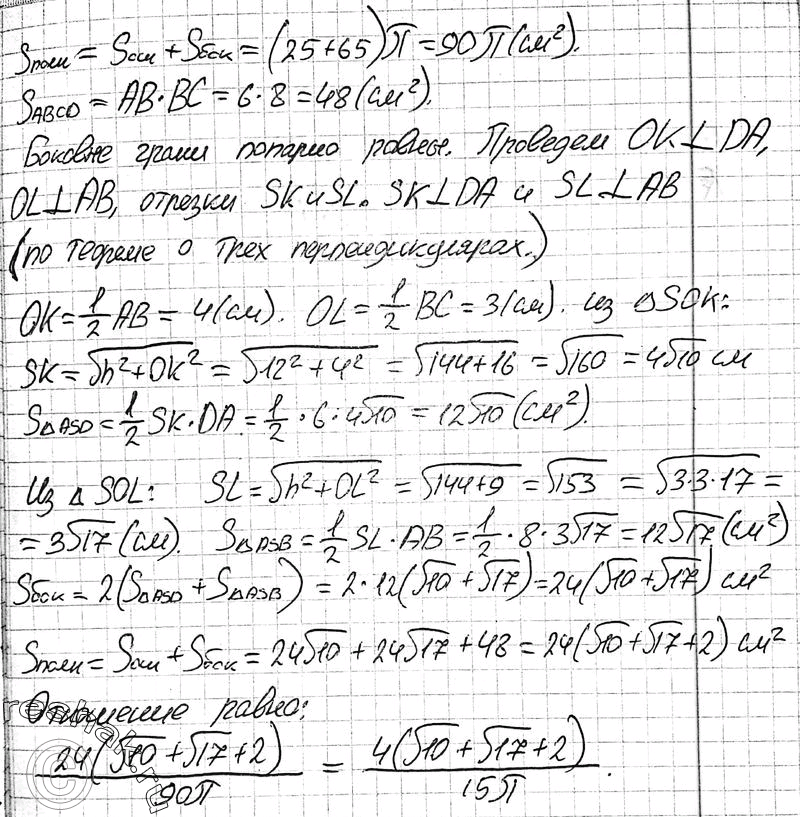 Sполн = Sосн + Sбок = (25+65)π = 90π (см²).
SABCD = AB·BC = 6·8 = 48 (см²).
Боковые грани попарно равны. Проведем OK⊥DA,
OL⊥AB, отрезки SK и SL. SK⊥DA и SL⊥AB
(по теореме о трех перпендикулярах.)
OK = 1/2 AB = 4(см). OL = 1/2 BC = 3(см). из △SOK:
SK = √(h²+OK²) = √(12²+4²) = √(144+16) = √160 = 4√10 см
S△ASD = 1/2 SK·DA = 1/2·6·4√10 = 12√10 (см²).
Из △SOL: SL = √(h²+OL²) = √(144+9) = √153 = √(3·3·17) =
= 3√17 (см). S△ASB = 1/2 SL·AB = 1/2·8·3√17 = 12√17 (см²)
Sбок = 2(S△ASD + S△ASB) = 2·12(√10+√17) = 24(√10+√17) см²
Sполн = Sосн + Sбок = 24√10 + 24√17 + 48 = 24(√10+√17+2) см²
Отношение равно:
24(√10+√17+2)/90π = 4(√10+√17+2)/15π.